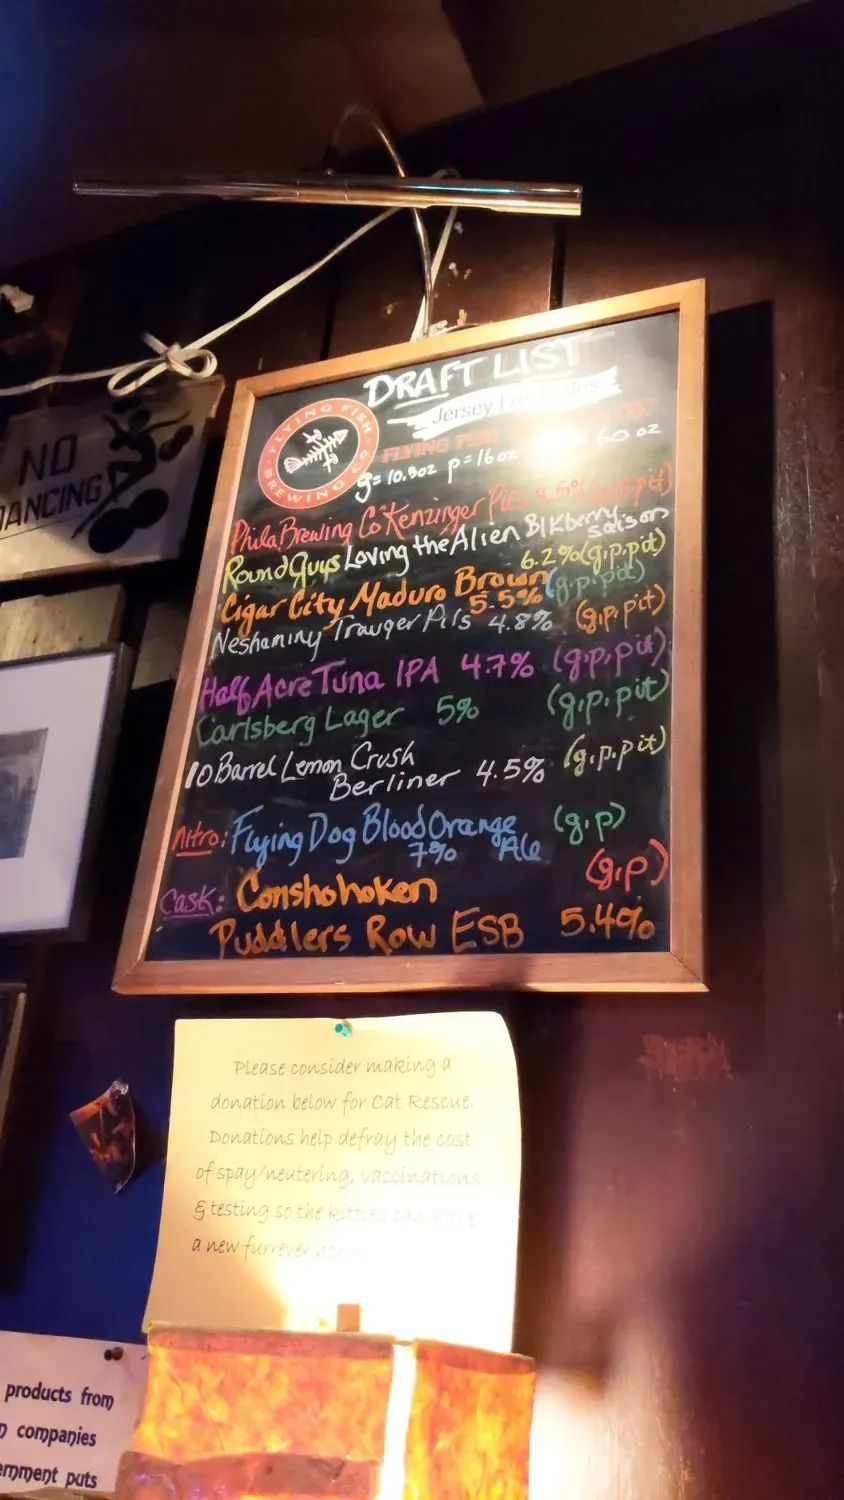 DRAFT LIST
Jersey
FLYING FISH
BREWING CO
FLYING FISH
g=10.5oz p=16oz 60 oz
Phila Brewing Co Kenzinger Pils 4.5% (g.p.pit)
Round Guys Loving the Alien Blkberry
Saison
6.2% (g.p.pit)
Cigar City Maduro Brown (g.p.pit)
5.5%
Neshaminy Trauger Pils 4.8% (g.p.pit)
Half Acre Tuna IPA 4.7% (g.p.pit)
Carlsberg Lager 5% (g.p.pit)
10 Barrel Lemon Crush
Berliner 4.5% (g.p.pit)
Nitro: Flying Dog Blood Orange (g.p)
7% Ale
Cask: Conshohoken (g.p)
Puddlers Row ESB 5.4%
NO
DANCING
Please consider making a
donation below for Cat Rescue.
Donations help defray the cost
of spay/neutering, vaccinations
& testing so the kitties can have
a new furrever
products from
companies
puts